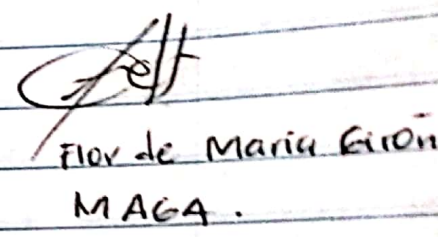 Flor de Maria Girón
MAGA.